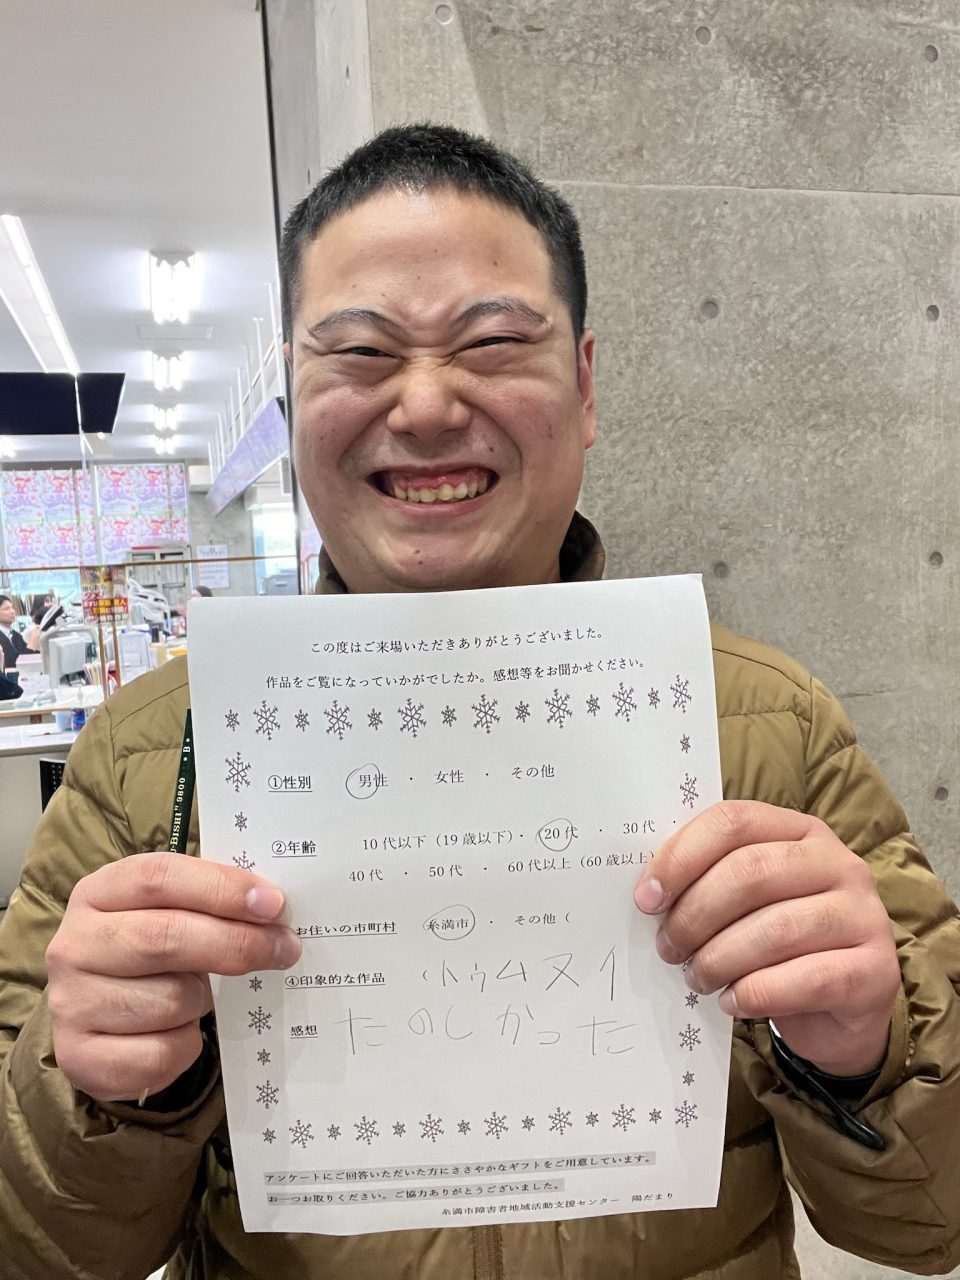 この度はご来場いただきありがとうございました。
作品をご覧になっていかがでしたか。感想等をお聞かせください。
①性別 男性 ・ 女性 ・ その他
②年齢 10代以下（19歳以下）・ 20代 ・ 30代 ・
40代 ・ 50代 ・ 60代以上（60歳以上）
お住いの市町村 糸満市 ・ その他（
④印象的な作品 トゥムヌイ
感想 たのしかった
アンケートにご回答いただいた方にささやかなギフトをご用意しています。
お一つお取りください。ご協力ありがとうございました。
糸満市障害者地域活動支援センター 陽だまり
U-BISHI" 9800 ★B★